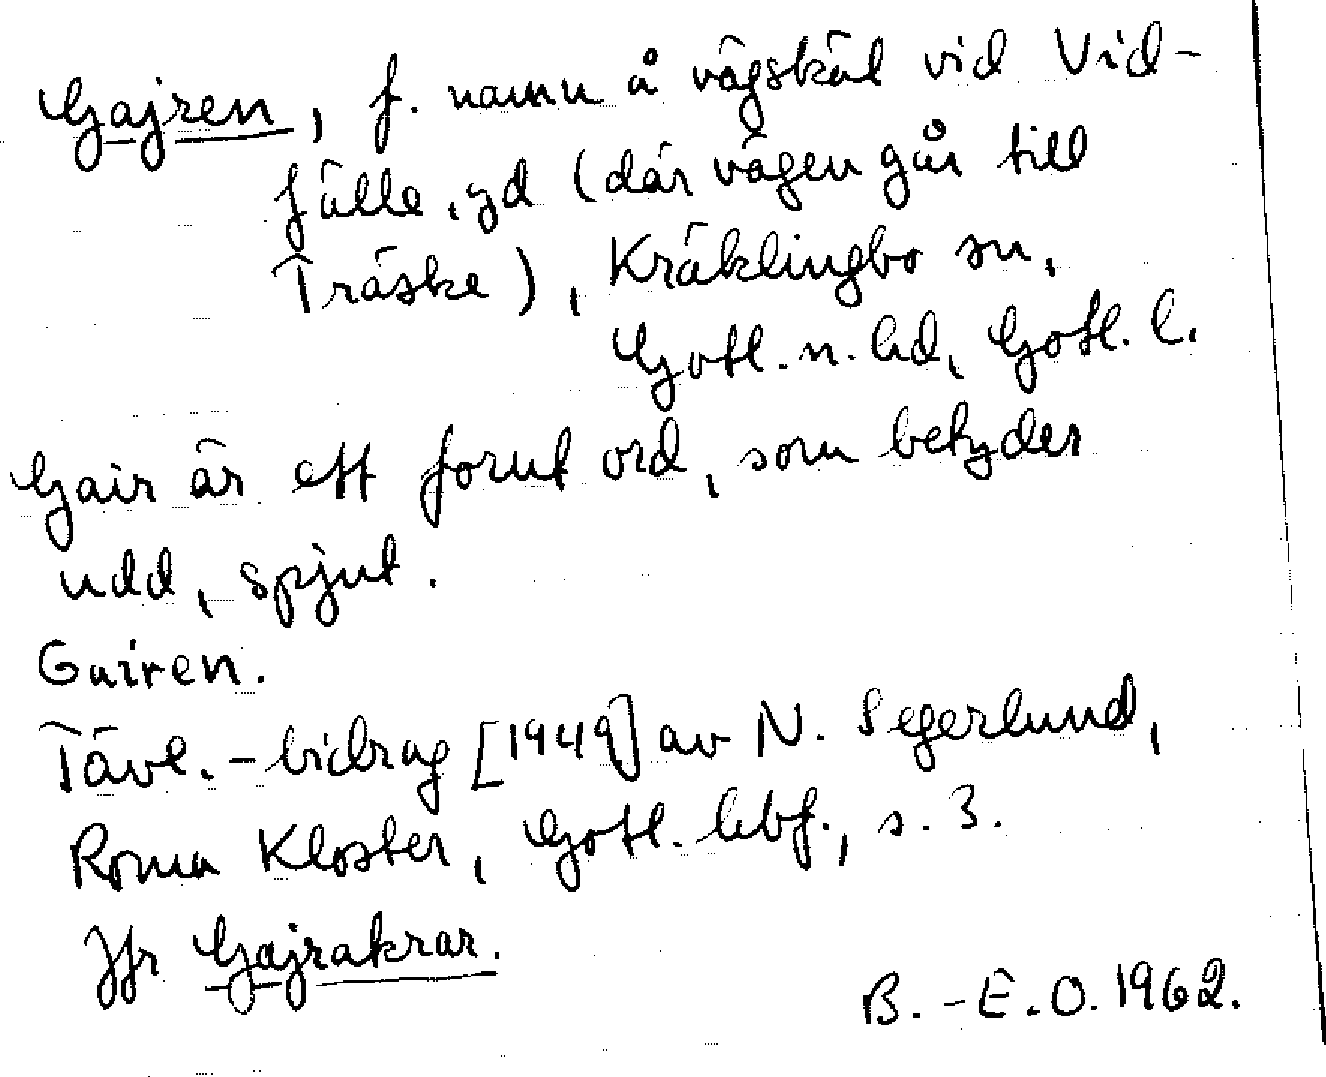 Gajren, f. namn å vägskäl vid Vid-
fälle, gd (där vägen går till
Träske), Kräklingbo sn,
Gotl. n. hd, Gotl. l.
Gair är ett fornt ord, som betyder
udd, spjut.
Gairen.
Tävl.-bidrag [1949] av N. Segerlund,
Roma Kloster, Gotl. hbf., s. 3.
Jfr Gajrakrar.
B.-E.O. 1962.